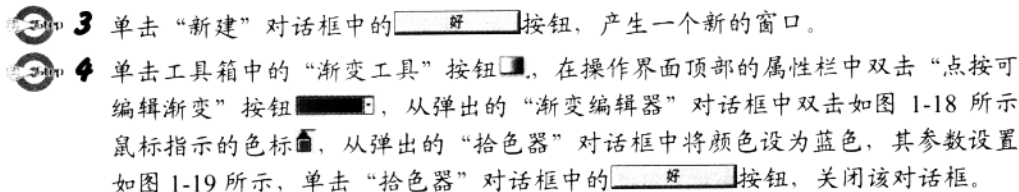 Step 3 单击“新建”对话框中的 好 按钮，产生一个新的窗口。
Step 4 单击工具箱中的“渐变工具”按钮，在操作界面顶部的属性栏中双击“点按可
编辑渐变”按钮，从弹出的“渐变编辑器”对话框中双击如图 1-18 所示
鼠标指示的色标，从弹出的“拾色器”对话框中将颜色设为蓝色，其参数设置
如图 1-19 所示，单击“拾色器”对话框中的 好 按钮，关闭该对话框。